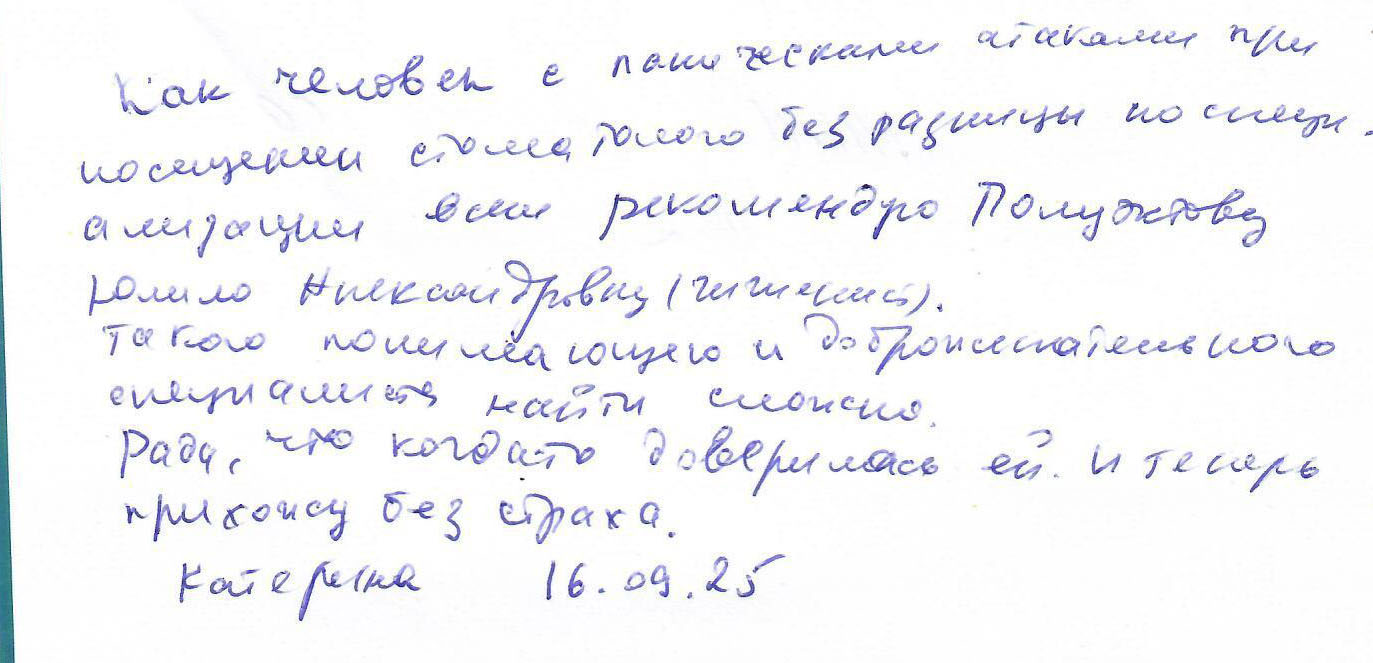 Как человек с паническими атаками при
посещении стоматолого без разницы по специ-
ализации всем рекомендую Полуэктову
Юлию Александровну (гигиенист).
такого понимающего и доброжелательного
специалиста найти сложно.
Рада, что когдато доверилась ей. И теперь
прихожу без страха.
Катерина 16.09.25